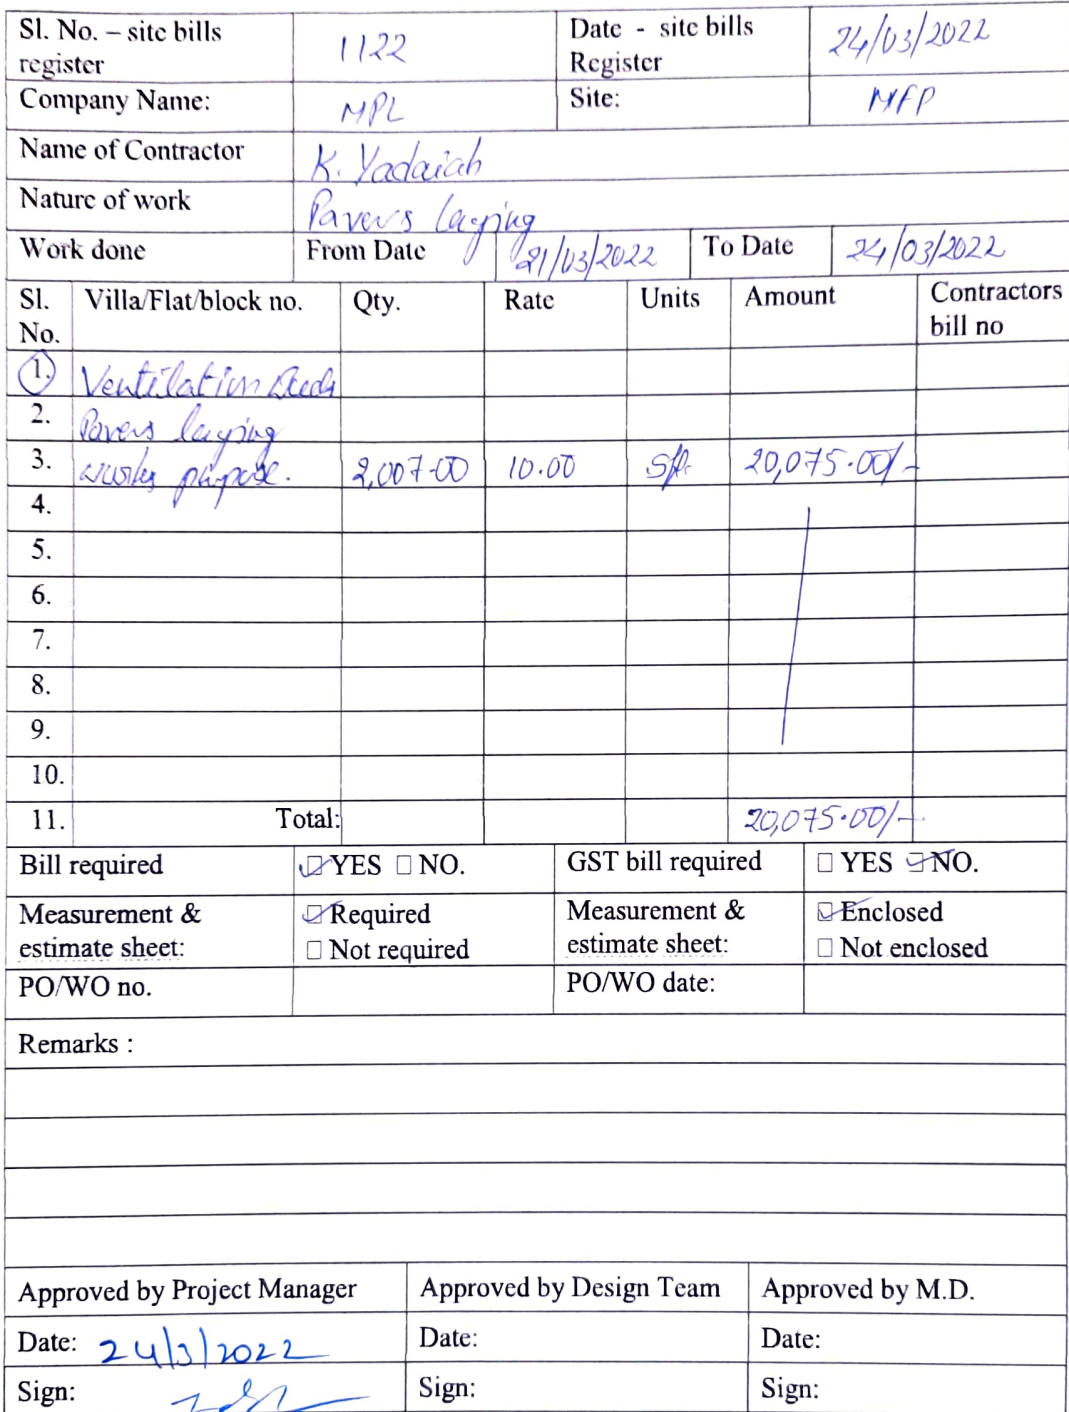 Sl. No. – site bills register 1122 Date - site bills Register 24/03/2022
Company Name: MPL Site: MFP
Name of Contractor K. Yadaiah
Nature of work Pavers laying
Work done From Date 21/03/2022 To Date 24/03/2022
Sl. No. Villa/Flat/block no. Qty. Rate Units Amount Contractors bill no
1. Ventilation
2. Pavers laying
3. works purpose. 2,007.00 10.00 Sft. 20,075.00/-
4.
5.
6.
7.
8.
9.
10.
11. Total: 20,075.00/-
Bill required YES NO. GST bill required YES NO.
Measurement & estimate sheet: Required Not required Measurement & estimate sheet: Enclosed Not enclosed
PO/WO no. PO/WO date:
Remarks :
Approved by Project Manager Approved by Design Team Approved by M.D.
Date: 24/3/2022 Date: Date:
Sign: Sign: Sign: